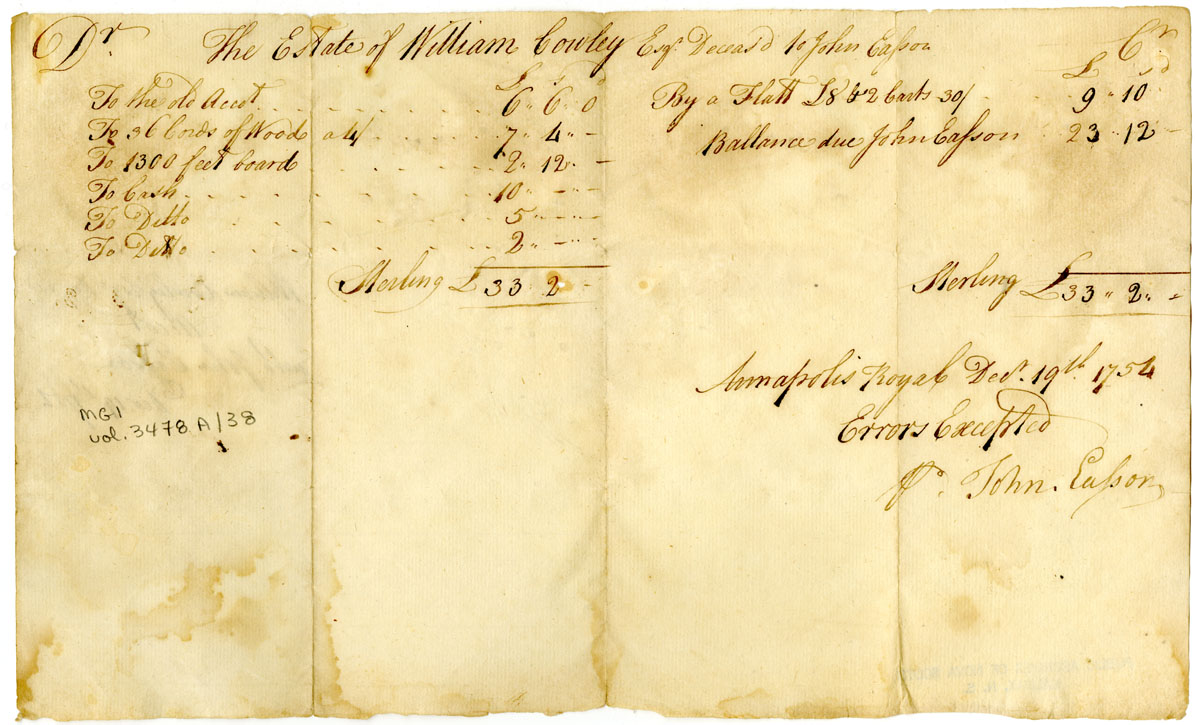 Dr. The Estate of William Cowley Esqr. Deceas'd to John Easson Cr
£ S D
To the old Accot 6 " 6 " 0
To 36 Cords of Wood a 4/ 7 " 4 " -
To 1300 feet board 2 " 12 " -
To Cash 10 " - " -
To Ditto 5 " - " -
To Ditto 2 " - " -
Sterling £ 33 2 " -
£ s d
By a Flatt £8 & 2 Carts 30/ 9 " 10
Ballance due John Easson 23 " 12 -
Sterling £33 " 2 " -
Annapolis Royal Decr. 19th. 1754
Errors Excepted
Pr. John. Easson
MG1
vol. 3478 A/38